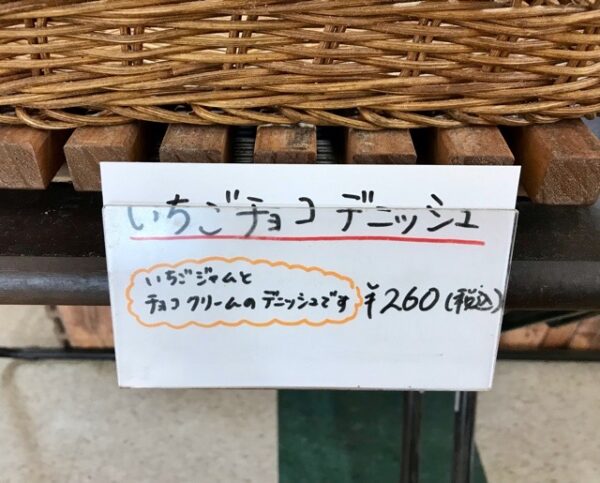 いちごチョコデニッシュ
いちごジャムと
チョコクリームのデニッシュです
¥260(税込)